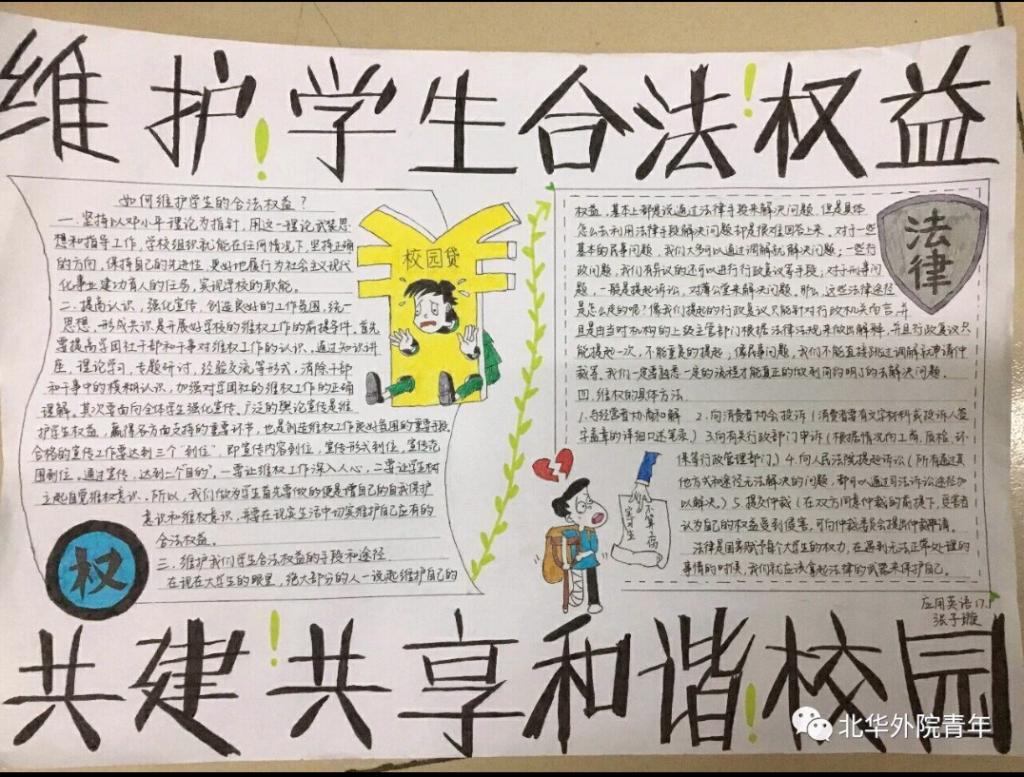 维护学生合法权益
如何维护学生的合法权益？
一.坚持以邓小平理论为指针，用这一理论武装思
想和指导工作，学校组织就能在任何情况下，坚持正确
的方向，保持自己的先进性，更好地履行为社会主义现代
化事业建功育人的任务，实现学校的职能。
二.提高认识，强化宣传，创造良好的工作氛围，统一
思想，形成共识是开展好学校的维权工作的前提条件。首先
要提高学团社干部和干事对维权工作的认识，通过知识讲
座，理论学习，专题研讨，经验交流等形式，消除干部
和干事中的模糊认识，加强对学团社的维权工作的正确
理解。其次要面向全体学生强化宣传。广泛的舆论宣传是维
护学生权益，赢得各方面支持的重要环节，也是创造维权工作良好氛围的重要手段
合格的宣传工作需达到三个"到位"，即宣传内容到位，宣传形式到位，宣传范
围到位。通过宣传，达到二个目的，一要让维权工作深入人心，二要让学生树
立起自觉维权意识。所以，我们做为学生首先要做的便是谓自己的自我保护
意识和维权意识，并要在现实生活中切实维护自己应有的
合法权益。
三.维护我们学生合法权益的手段和途径
在现在大学生的眼里，绝大部分的人一说起维护自己的
校园贷
权
权益，基本上都是说通过法律手段来解决问题，但是具体
怎么去利用法律手段解决问题却是很难回答上来，对于一些
基本的民事问题，我们大多可以通过调解就解决问题；一些行
政问题，我们有异议的还可以进行行政复议等手段；对于刑事问
题，一般是提起诉讼，对薄公堂来解决问题。那么，这些法律途径
是怎么走的呢？像我们提起的行政复议只能针对行政机关而言，并
且是由当时机构的上级主管部门根据法律法规来做出解释，并且行政复议只
能提起一次，不能重复的提起；像民事问题，我们不能直接跳过调解就申请仲
裁等。我们一定要熟悉一定的流程才能真正的做到简约明了的去解决问题。
四.维权的具体方法.
1.与经营者协商和解 2.向消费者协会投诉（消费者需有文字材料或投诉人签
字盖章的详细口述笔录）3.向有关行政部门申诉（根据情况向工商，质检，环
保等行政管理部门）4.向人民法院提起诉讼（所有通过其
他方式和途径无法解决的问题，都可以通过司法诉讼途径加
以解决）5.提交仲裁（在双方同意仲裁的前提下，受害者
认为自己的权益受到侵害，可向仲裁委员会提出仲裁申请。
法律是国家赋予每个大学生的权力，在遇到无法正常处理的
事情的时候，我们就应该拿起法律的武器来保护自己。
法律
应用英语17.1
张子璇
共建共享和谐校园
北华外院青年